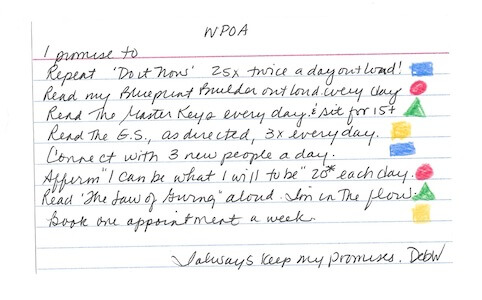 WPOA
I promise to
Repeat 'Do it Now' 25x twice a day out loud!
Read my Blueprint Builder out loud every day
Read The Master Keys every day & sit for 15+
Read The G.S., as directed, 3x every day.
Connect with 3 new people a day.
Affirm "I can be what I will to be" 20* each day.
Read "The Law of Giving" aloud. I'm in The flow.
Book one appointment a week.
I always keep my promises. DebW